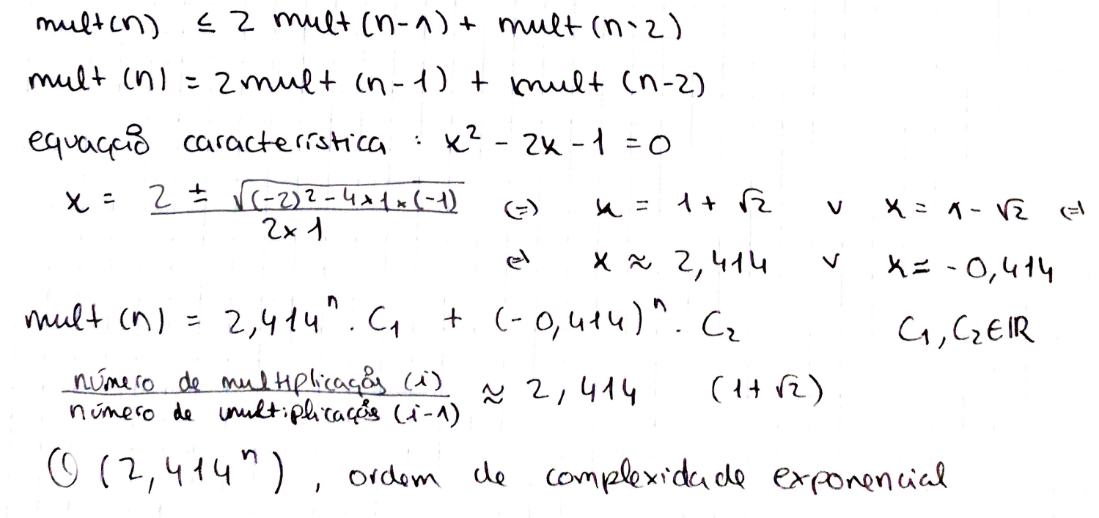 mult(n) ≤ 2 mult(n-1) + mult(n-2)
mult(n) = 2mult(n-1) + mult(n-2)
equação característica : x² - 2x - 1 = 0
x = (2 ± √((-2)² - 4×1×(-1))) / (2×1) (=) x = 1 + √2 ∨ x = 1 - √2 (=)
(=) x ≈ 2,414 ∨ x ≈ -0,414
mult(n) = 2,414ⁿ . C₁ + (-0,414)ⁿ . C₂ C₁, C₂ ∈ ℝ
número de multiplicações (i) / número de multiplicações (i-1) ≈ 2,414 (1+√2)
O (2,414ⁿ), ordem de complexidade exponencial